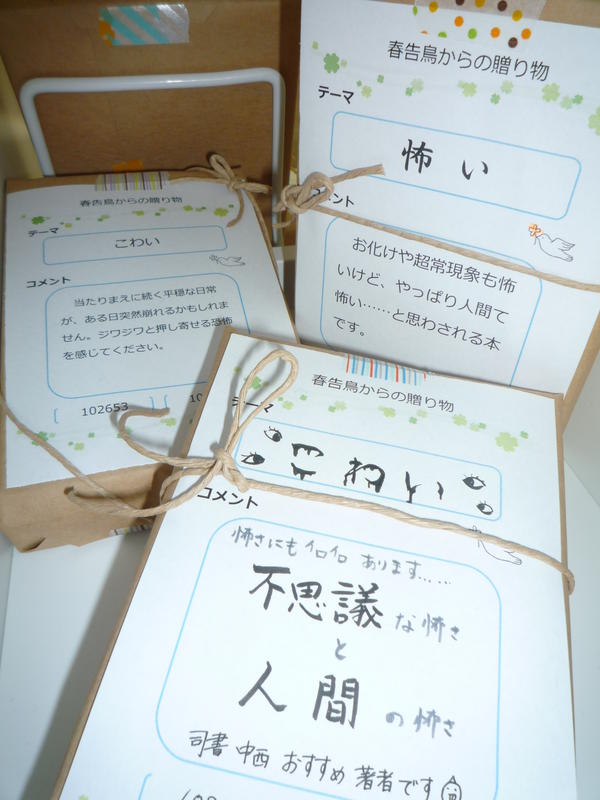 春告鳥からの贈り物
テーマ
こわい
コメント
当たりまえに続く平穏な日常
が、ある日突然崩れるかもしれま
せん。ジワジワと押し寄せる恐怖
を感じてください。
102653
春告鳥からの贈り物
テーマ
怖い
コメント
お化けや超常現象も怖
いけど、やっぱり人間て
怖い……と思わされる本
です。
春告鳥からの贈り物
テーマ
こわい
コメント
怖さにもイロイロあります……
不思議な怖さ
と
人間の怖さ
司書 中西 おすすめ 著者です